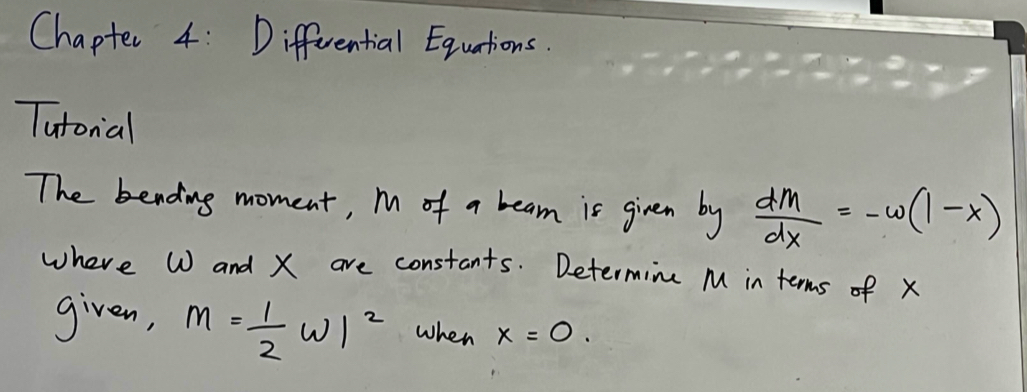 Chapter 4: Differential Equations.
Tutorial
The bending moment, M of a beam is given by dM/dx = -w(l-x)
where w and x are constants. Determine M in terms of x
given, M = 1/2 wl² when x = 0.